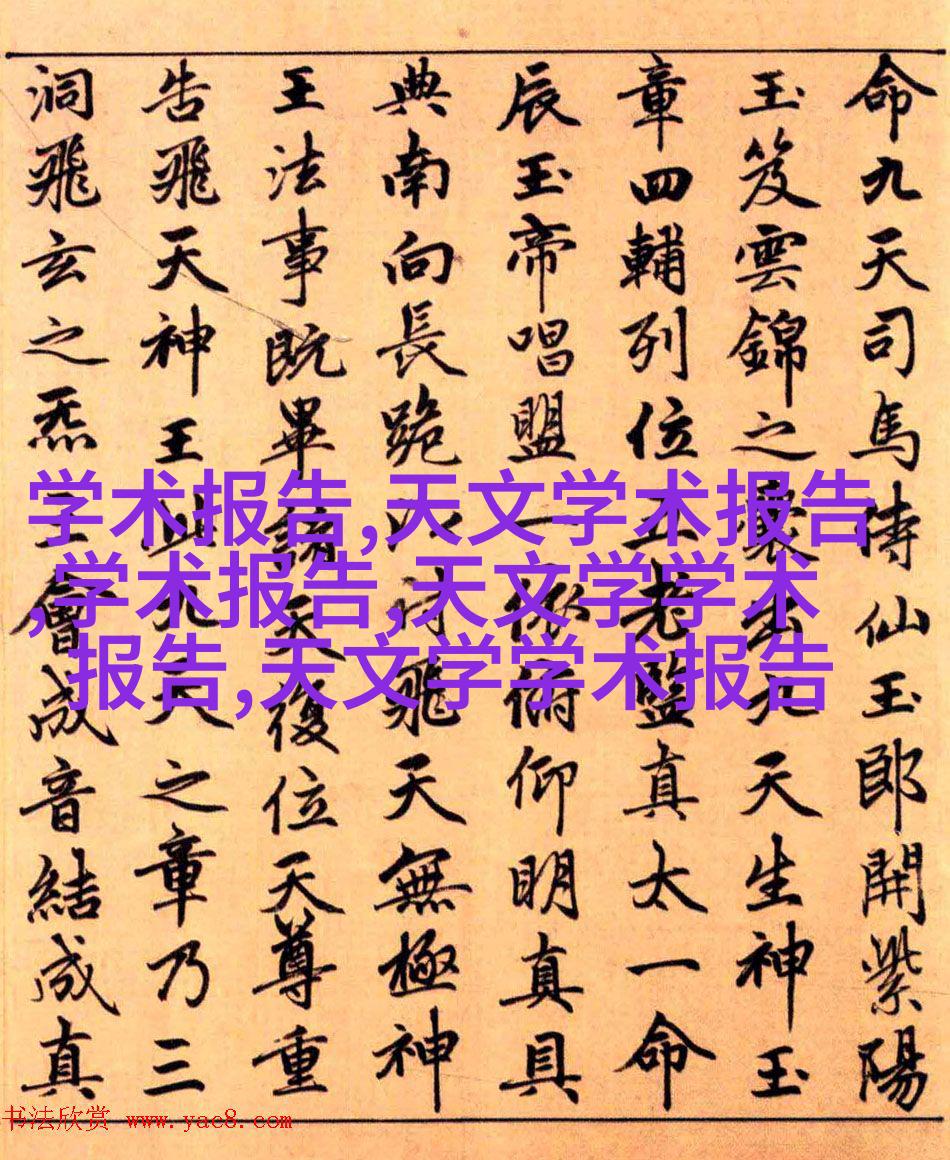 命九天司馬侍仙玉郎開紫陽
玉笈雲錦之囊出九天生神玉
章四輔列位五老監真太一命
辰玉帝唱盟一俯仰明真具
典南向長跪以付飛天無極神
王法事既畢諸天復位天尊重
告飛天神王此九天之章乃三
洞飛玄之炁三會成音結成真
学术报告,天文学术报告
,学术报告,天文学学术
报告,天文学学术报告
书法欣赏 www.yac8.com